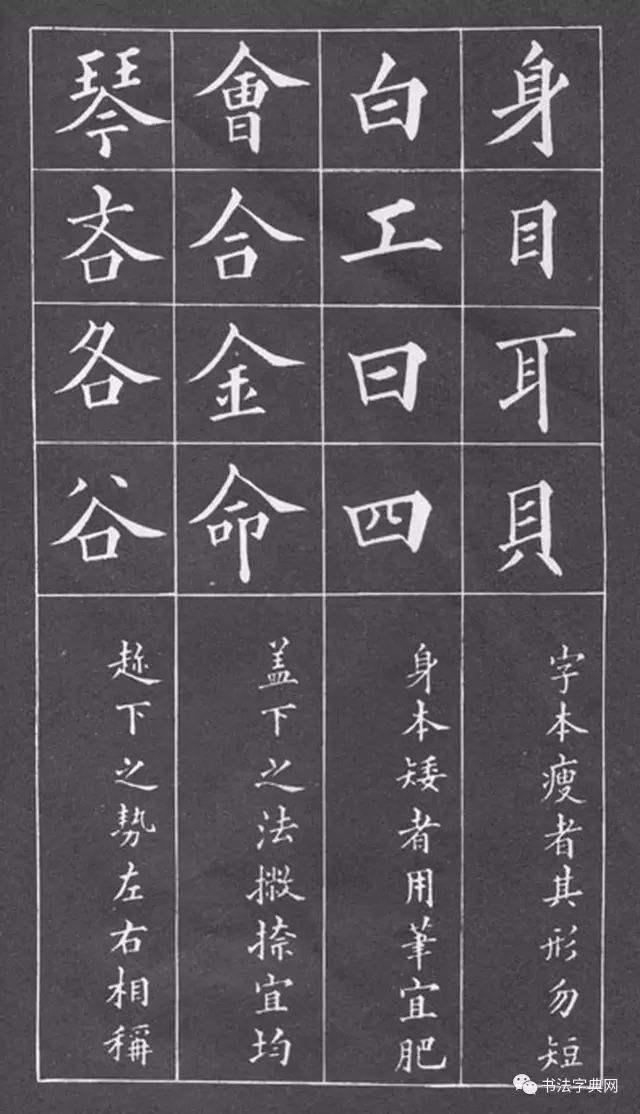 身目耳貝
字本瘦者其形勿短
白工曰四
身本矮者用筆宜肥
會合金命
盖下之法撇捺宜均
琴吝各谷
趂下之勢左右相稱
书法字典网